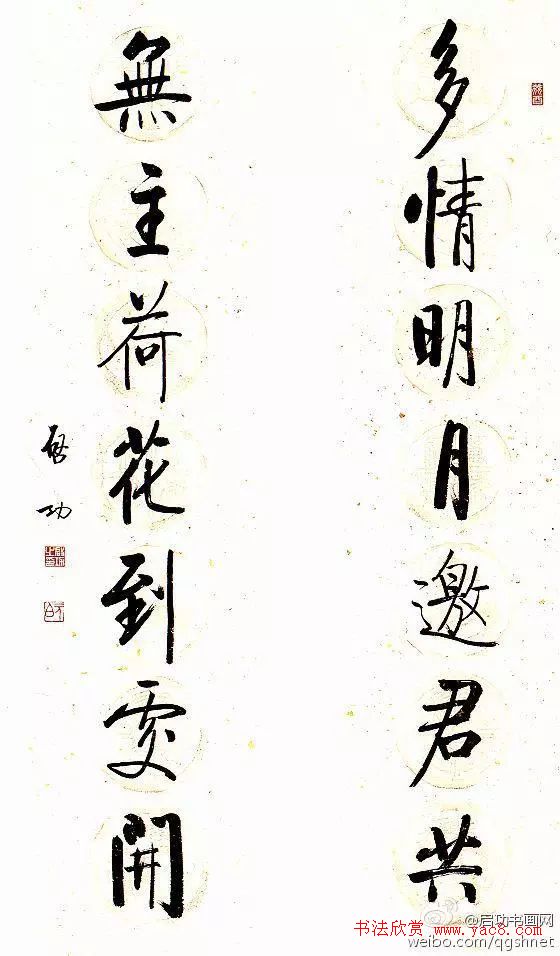 多情明月邀君共
無主荷花到處開
啓功
书法欣赏 www.yac8.com
@启功书画网
weibo.com/qgshnet